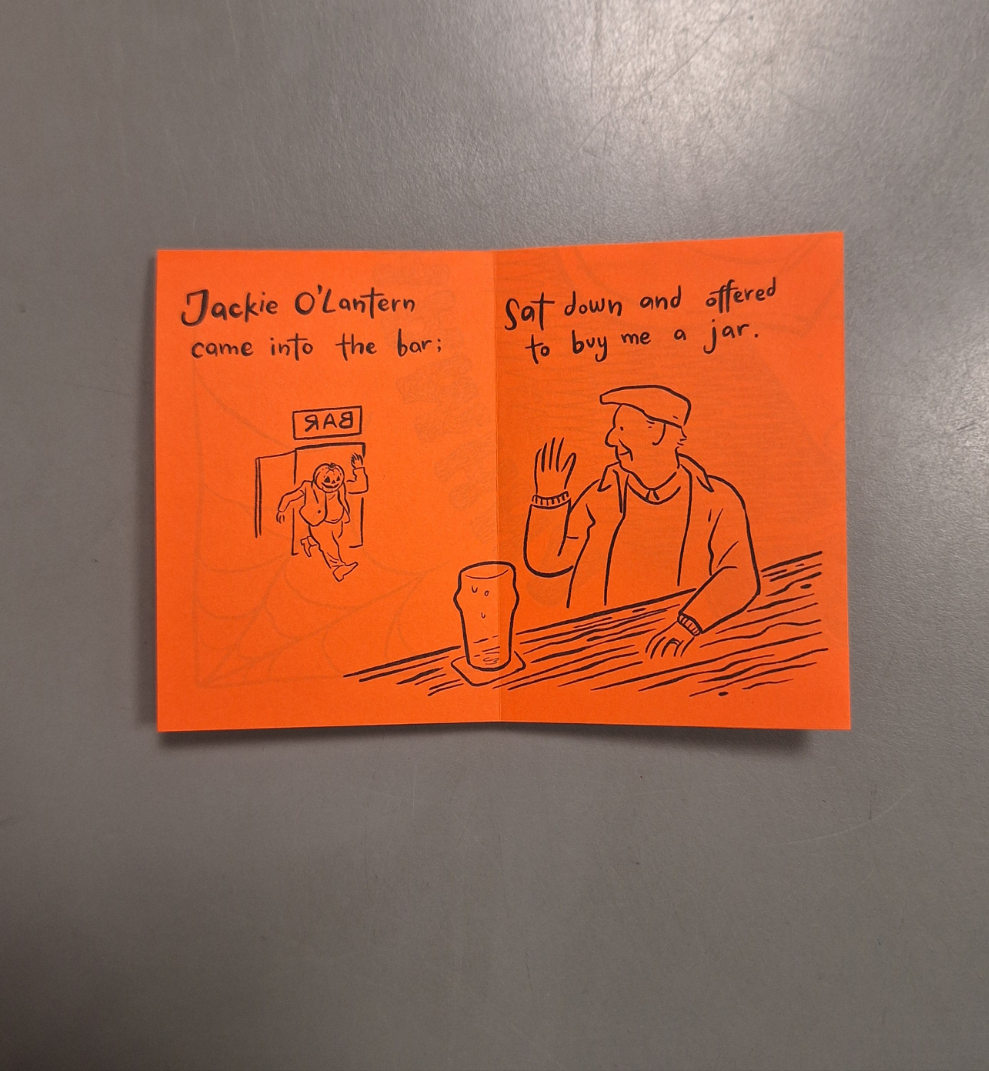 Jackie O'Lantern
came into the bar;
BAR
Sat down and offered
to buy me a jar.